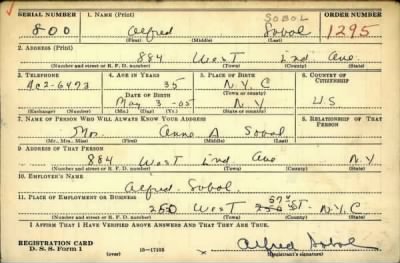 SERIAL NUMBER 1. NAME (Print) SOBOL ORDER NUMBER
800 Alfred Sobol 1295
(First) (Middle) (Last)
2. ADDRESS (Print)
884 West End Ave.
(Number and street or R. F. D. number) (Town) (County) (State)
3. TELEPHONE 4. AGE IN YEARS 5. PLACE OF BIRTH 6. COUNTRY OF CITIZENSHIP
AC2-6473 35 N.Y.C
(Town or county)
DATE OF BIRTH
May 3 -05 NY US
(Exchange) (Number) (Mo.) (Day) (Yr.) (State or country)
7. NAME OF PERSON WHO WILL ALWAYS KNOW YOUR ADDRESS 8. RELATIONSHIP OF THAT PERSON
Mrs. Anna A Sobol
(Mr., Mrs., Miss) (First) (Middle) (Last)
9. ADDRESS OF THAT PERSON
884 West End Ave N.Y
(Number and street or R. F. D. number) (Town) (County) (State)
10. EMPLOYER'S NAME
Alfred Sobol.
11. PLACE OF EMPLOYMENT OR BUSINESS
57th
250 West ST- N.Y.C
(Number and street or R. F. D. number) (Town) (County) (State)
I AFFIRM THAT I HAVE VERIFIED ABOVE ANSWERS AND THAT THEY ARE TRUE.
REGISTRATION CARD
D. S. S. Form 1 (over) 16-17105 Alfred Sobol
(Registrant's signature)